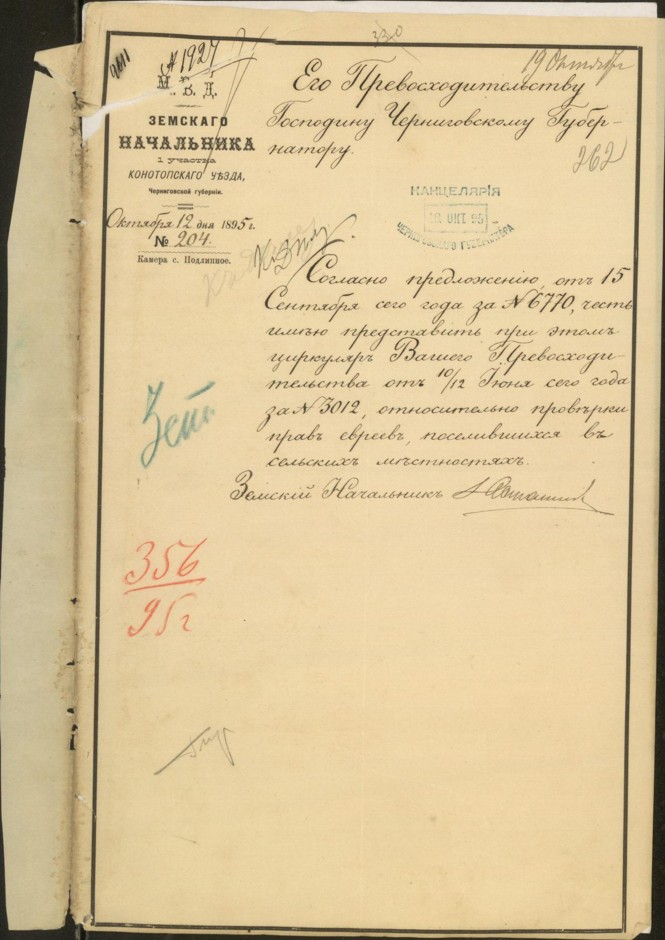 330
№ 1927
19 Октября
М. В. Д.
ЗЕМСКАГО
НАЧАЛЬНИКА
1 участка
КОНОТОПСКАГО УѢЗДА,
Черниговской губерніи.
Октября 12 дня 1895 г.
№ 204.
Камера с. Подлипное.
Его Превосходительству
Господину Черниговскому Губер-
натору.
262
КАНЦЕЛЯРІЯ
18 ОКТ 95
ЧЕРНИГОВСКАГО ГУБЕРНАТОРА
К дѣлу
Согласно предложенію, отъ 15
Сентября сего года за № 6770, честь
имѣю представить при этомъ
циркуляръ Вашего Превосходи-
тельства отъ 10/12 Іюня сего года
за № 3012, относительно провѣрки
правъ евреевъ, поселившихся въ
сельскихъ мѣстностяхъ.
Земскій Начальникъ
356
95 г